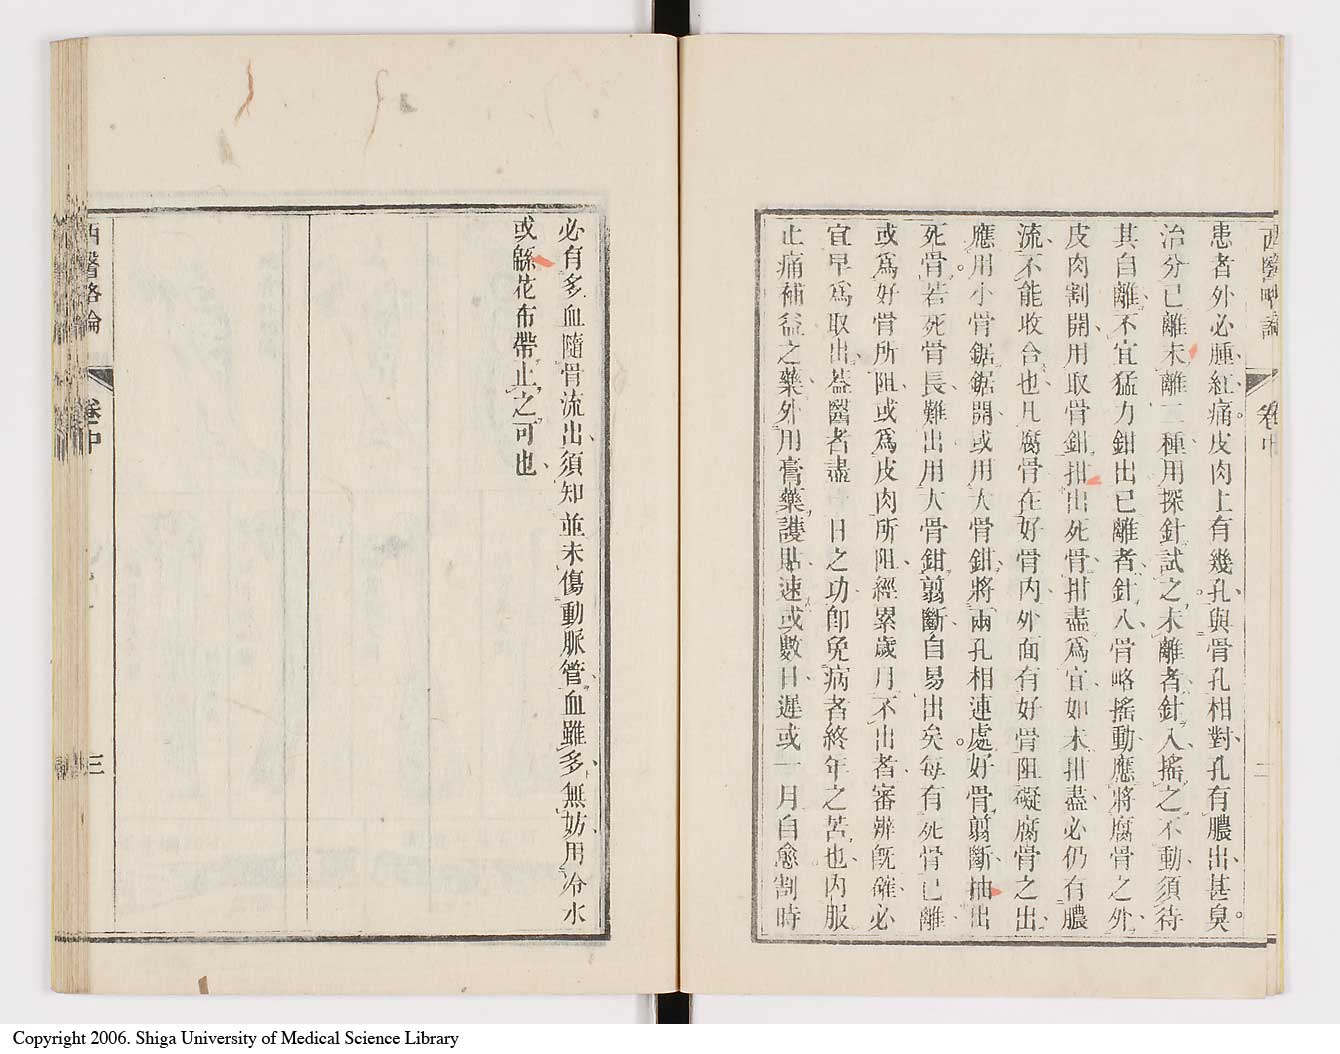 西醫略論 卷中 二
患者外必腫紅痛皮肉上有幾孔與骨孔相對孔有膿出甚臭
治分已離未離二種用探針試之未離者針入搖之不動須待
其自離不宜猛力鉗出已離者針入骨略搖動應將腐骨之外
皮肉割開用取骨鉗拑出死骨拑盡爲宜如未拑盡必仍有膿
流不能收合也凡腐骨在好骨內外面有好骨阻礙腐骨之出
應用小骨鋸鋸開或用大骨鉗將兩孔相連處好骨翦斷抽出
死骨若死骨長難出用大骨鉗翦斷自易出矣每有死骨已離
或爲好骨所阻或爲皮肉所阻經累歲月不出者審辨旣確必
宜早爲取出葢醫者盡 日之功卽免病者終年之苦也內服
止痛補益之藥外用膏藥護貼速或數日遲或一月自愈割時
必有多血隨骨流出須知並未傷動脈管血雖多無妨用冷水
或緜花布帶止之可也
西醫略論 卷中 三
Copyright 2006. Shiga University of Medical Science Library